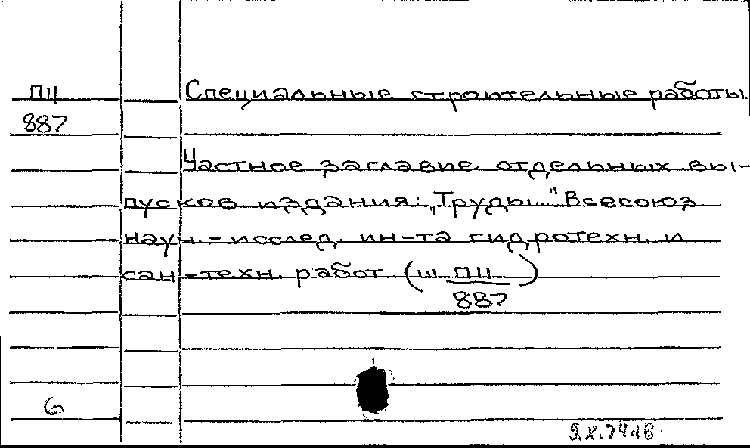 ПЦ Специальные строительные работы.
887
Частное заглавие отдельных вы-
пусков издания: „Труды..." Всесоюз
науч.-исслед. ин-та гидротехн. и
сан-техн. работ (ш. ПЦ
887)
6